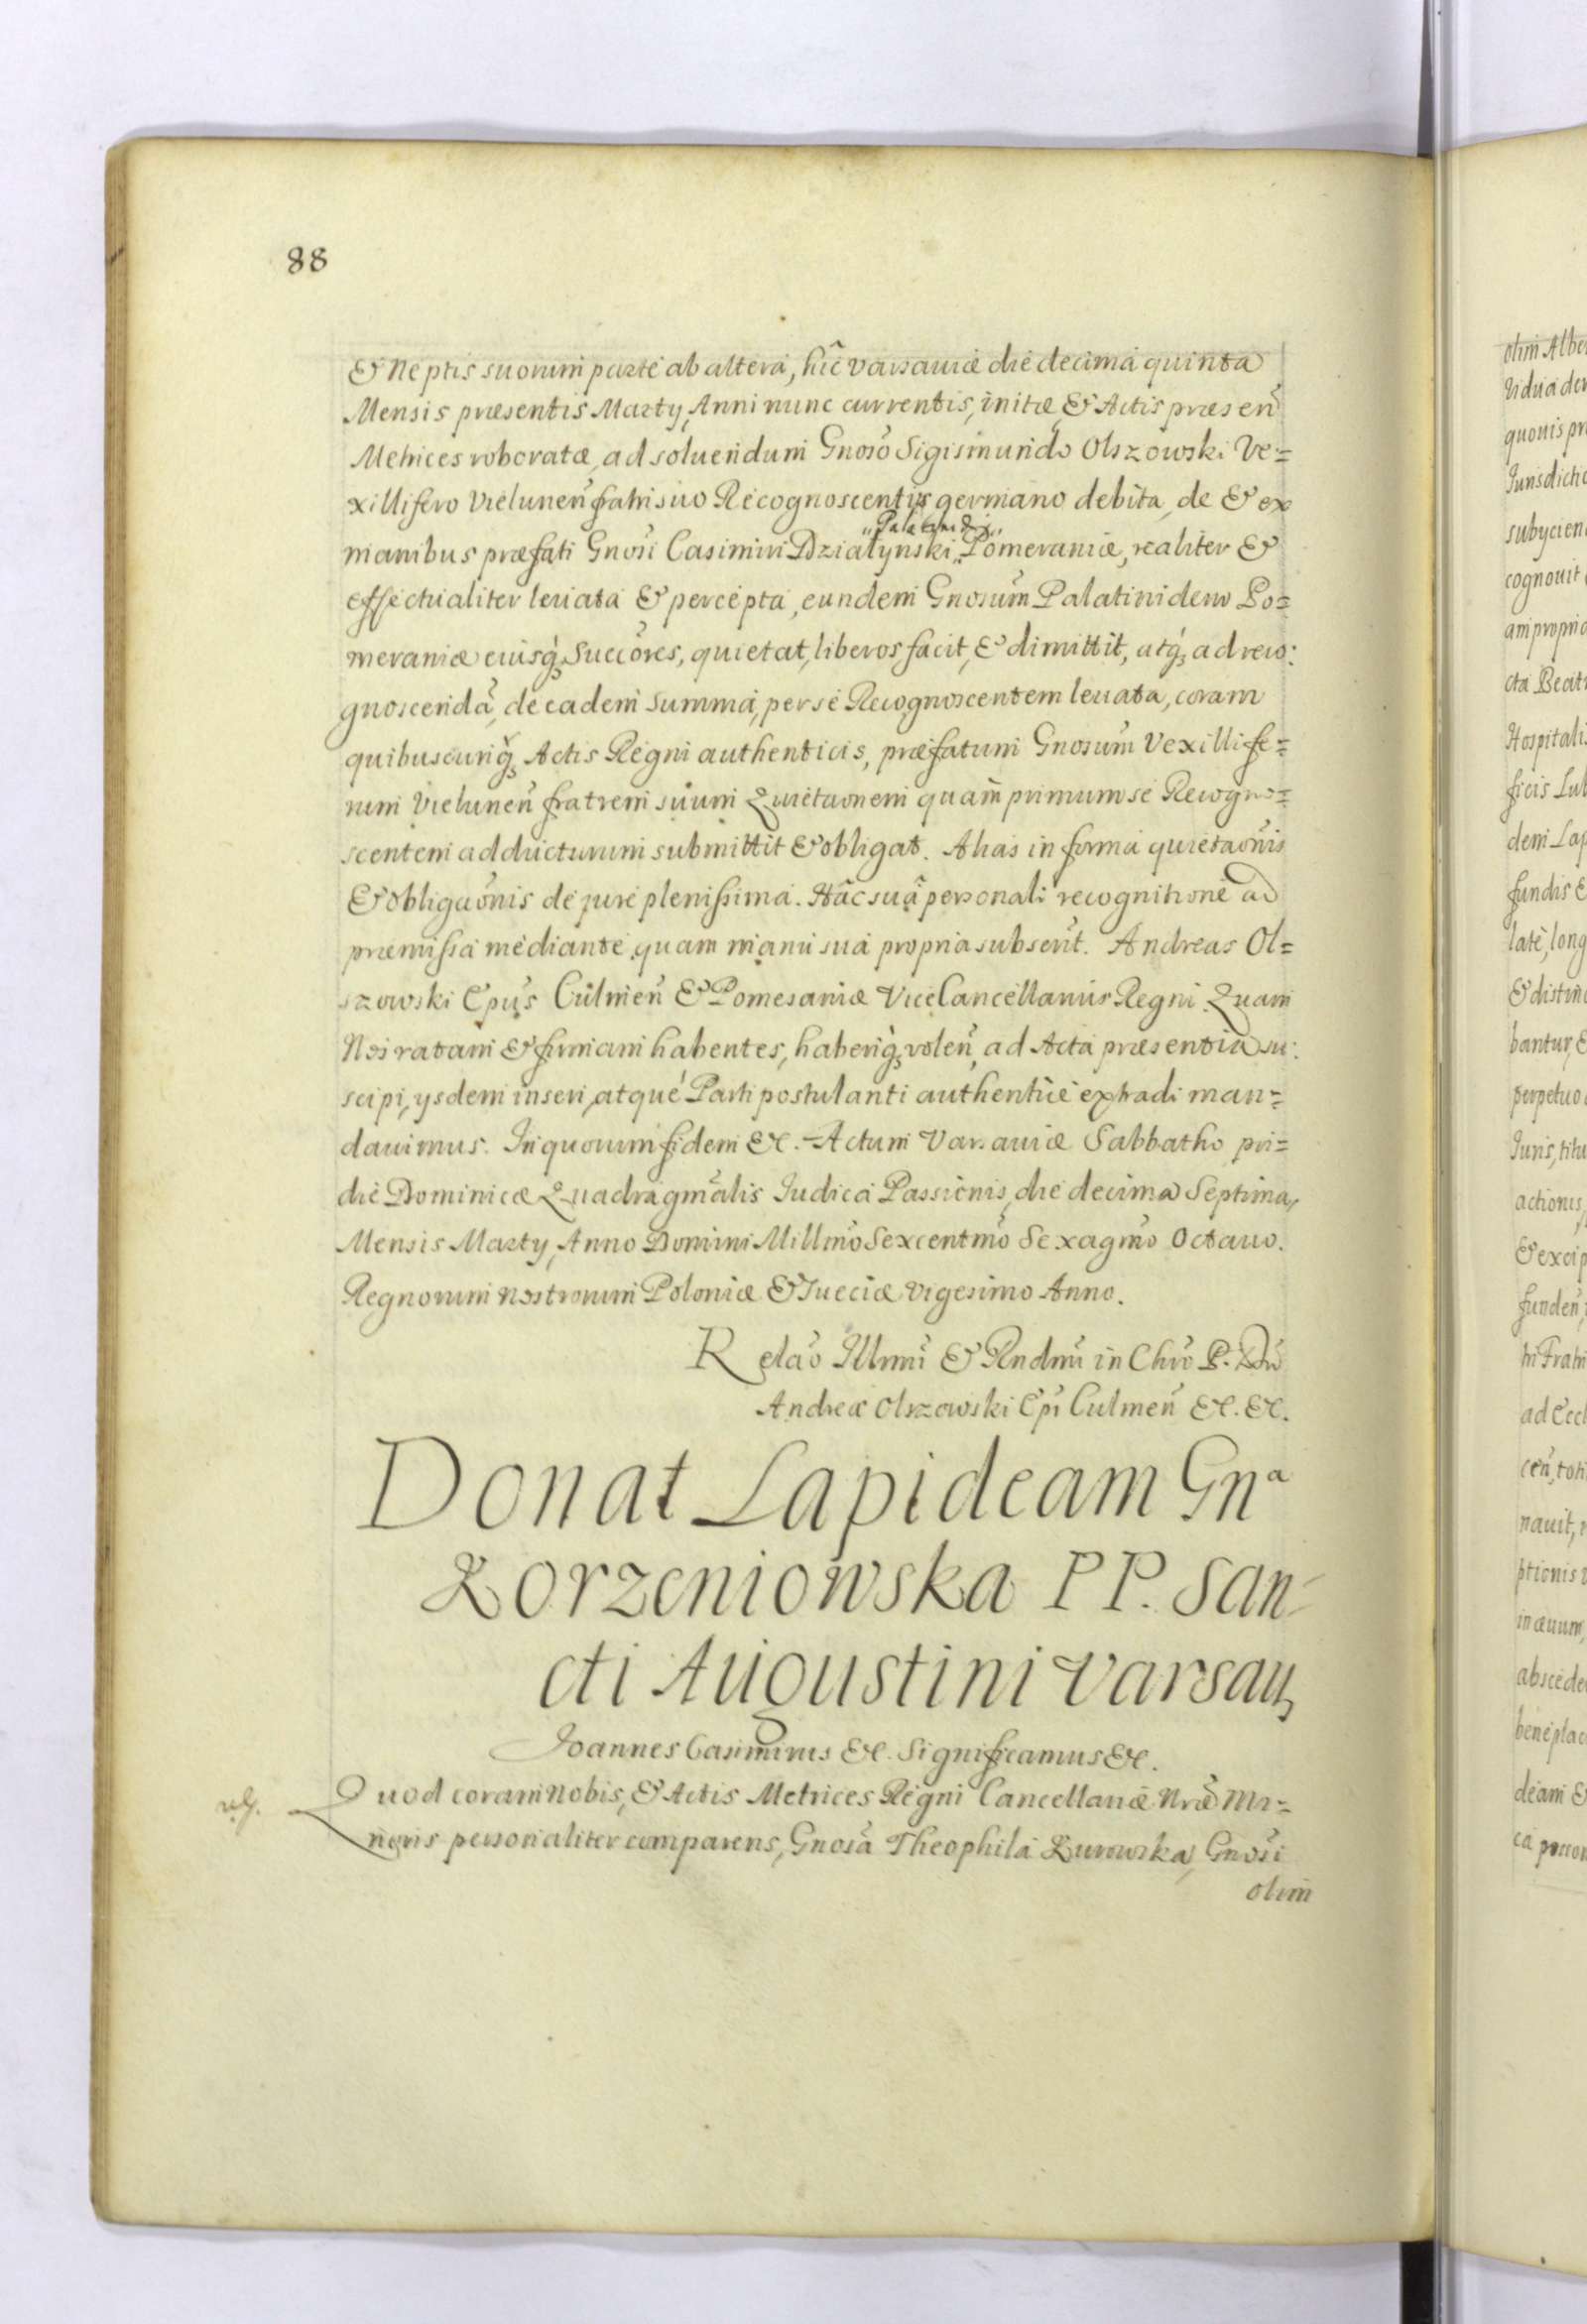 88
& Neptis suorum parte ab altera, hîc Varsauiæ die decima quinta
Mensis præsentis Marty, Anni nunc currentis, initæ, & Actis præsen̄
Metrices roboratæ, ad soluendum Gnoso Sigismundo Olszowski Ve=
xillifero Vielunen̄ fratri suo Recognoscentis germano debita, de & ex
„Palatinidæ„
manibus præfati Gnosi Casimiri Dzialynski„ Pomeraniæ, realiter &
effectualiter leuata & percepta, eundem Gnosum Palatinidem Po=
meraniæ eiusq́ȝ Succores, quietat, liberos facit, & dimittit, atq́ȝ ad reco:
gnoscendā, de eadem summa, per se Recognoscentem leuata, coram
quibuscunq́ȝ Actis Regni authenticis, præfatum Gnosum Vexillife=
rum Vielunen̄ fratrem suum Quietaonem quam primum se Recogno=
scentem adducturum submittit & obligat. Alias in forma quietaōnis
& obligaōnis de jure plenissima. Hâc suâ personali recognitione ad
præmissa mediante, quam manu sua propria subscrūt. Andreas Ol=
szowski Epūs Culmen̄ & Pomesaniæ ViceCancellarius Regni. Quam
Nos ratam & firmam habentes, haberiq́ȝ volen̄, ad Acta præsentia su:
scipi, ysdem inseri, atque Parti postulanti authenticè extradi man=
dauimus. In quorum fidem &c. Actum Varsauiæ Sabbatho pri=
die Dominicæ Quadragmālis Iudica Passionis, die decima Septima,
Mensis Marty, Anno Domini Millmō Sexcentmō Sexagmō Octauo.
Regnorum nostrorum Poloniæ & Sueciæ vigesimo Anno.
Relaō Illrmi & Rndmi in Chrō P. Dn̄i
Andreæ Olszowski Epī Culmen̄ &c. &c.
Donat Lapideam Gnᵃ
Korzeniowska PP. San-
cti Augustini Varsauȝ
Ioannes Casimirus &c. Significamus &c.
Quod coram Nobis, & Actis Metrices Regni Cancellariæ Nræ Mi=
noris personaliter comparens, Gnosa Theophila Kurowska, Gnosi
olim